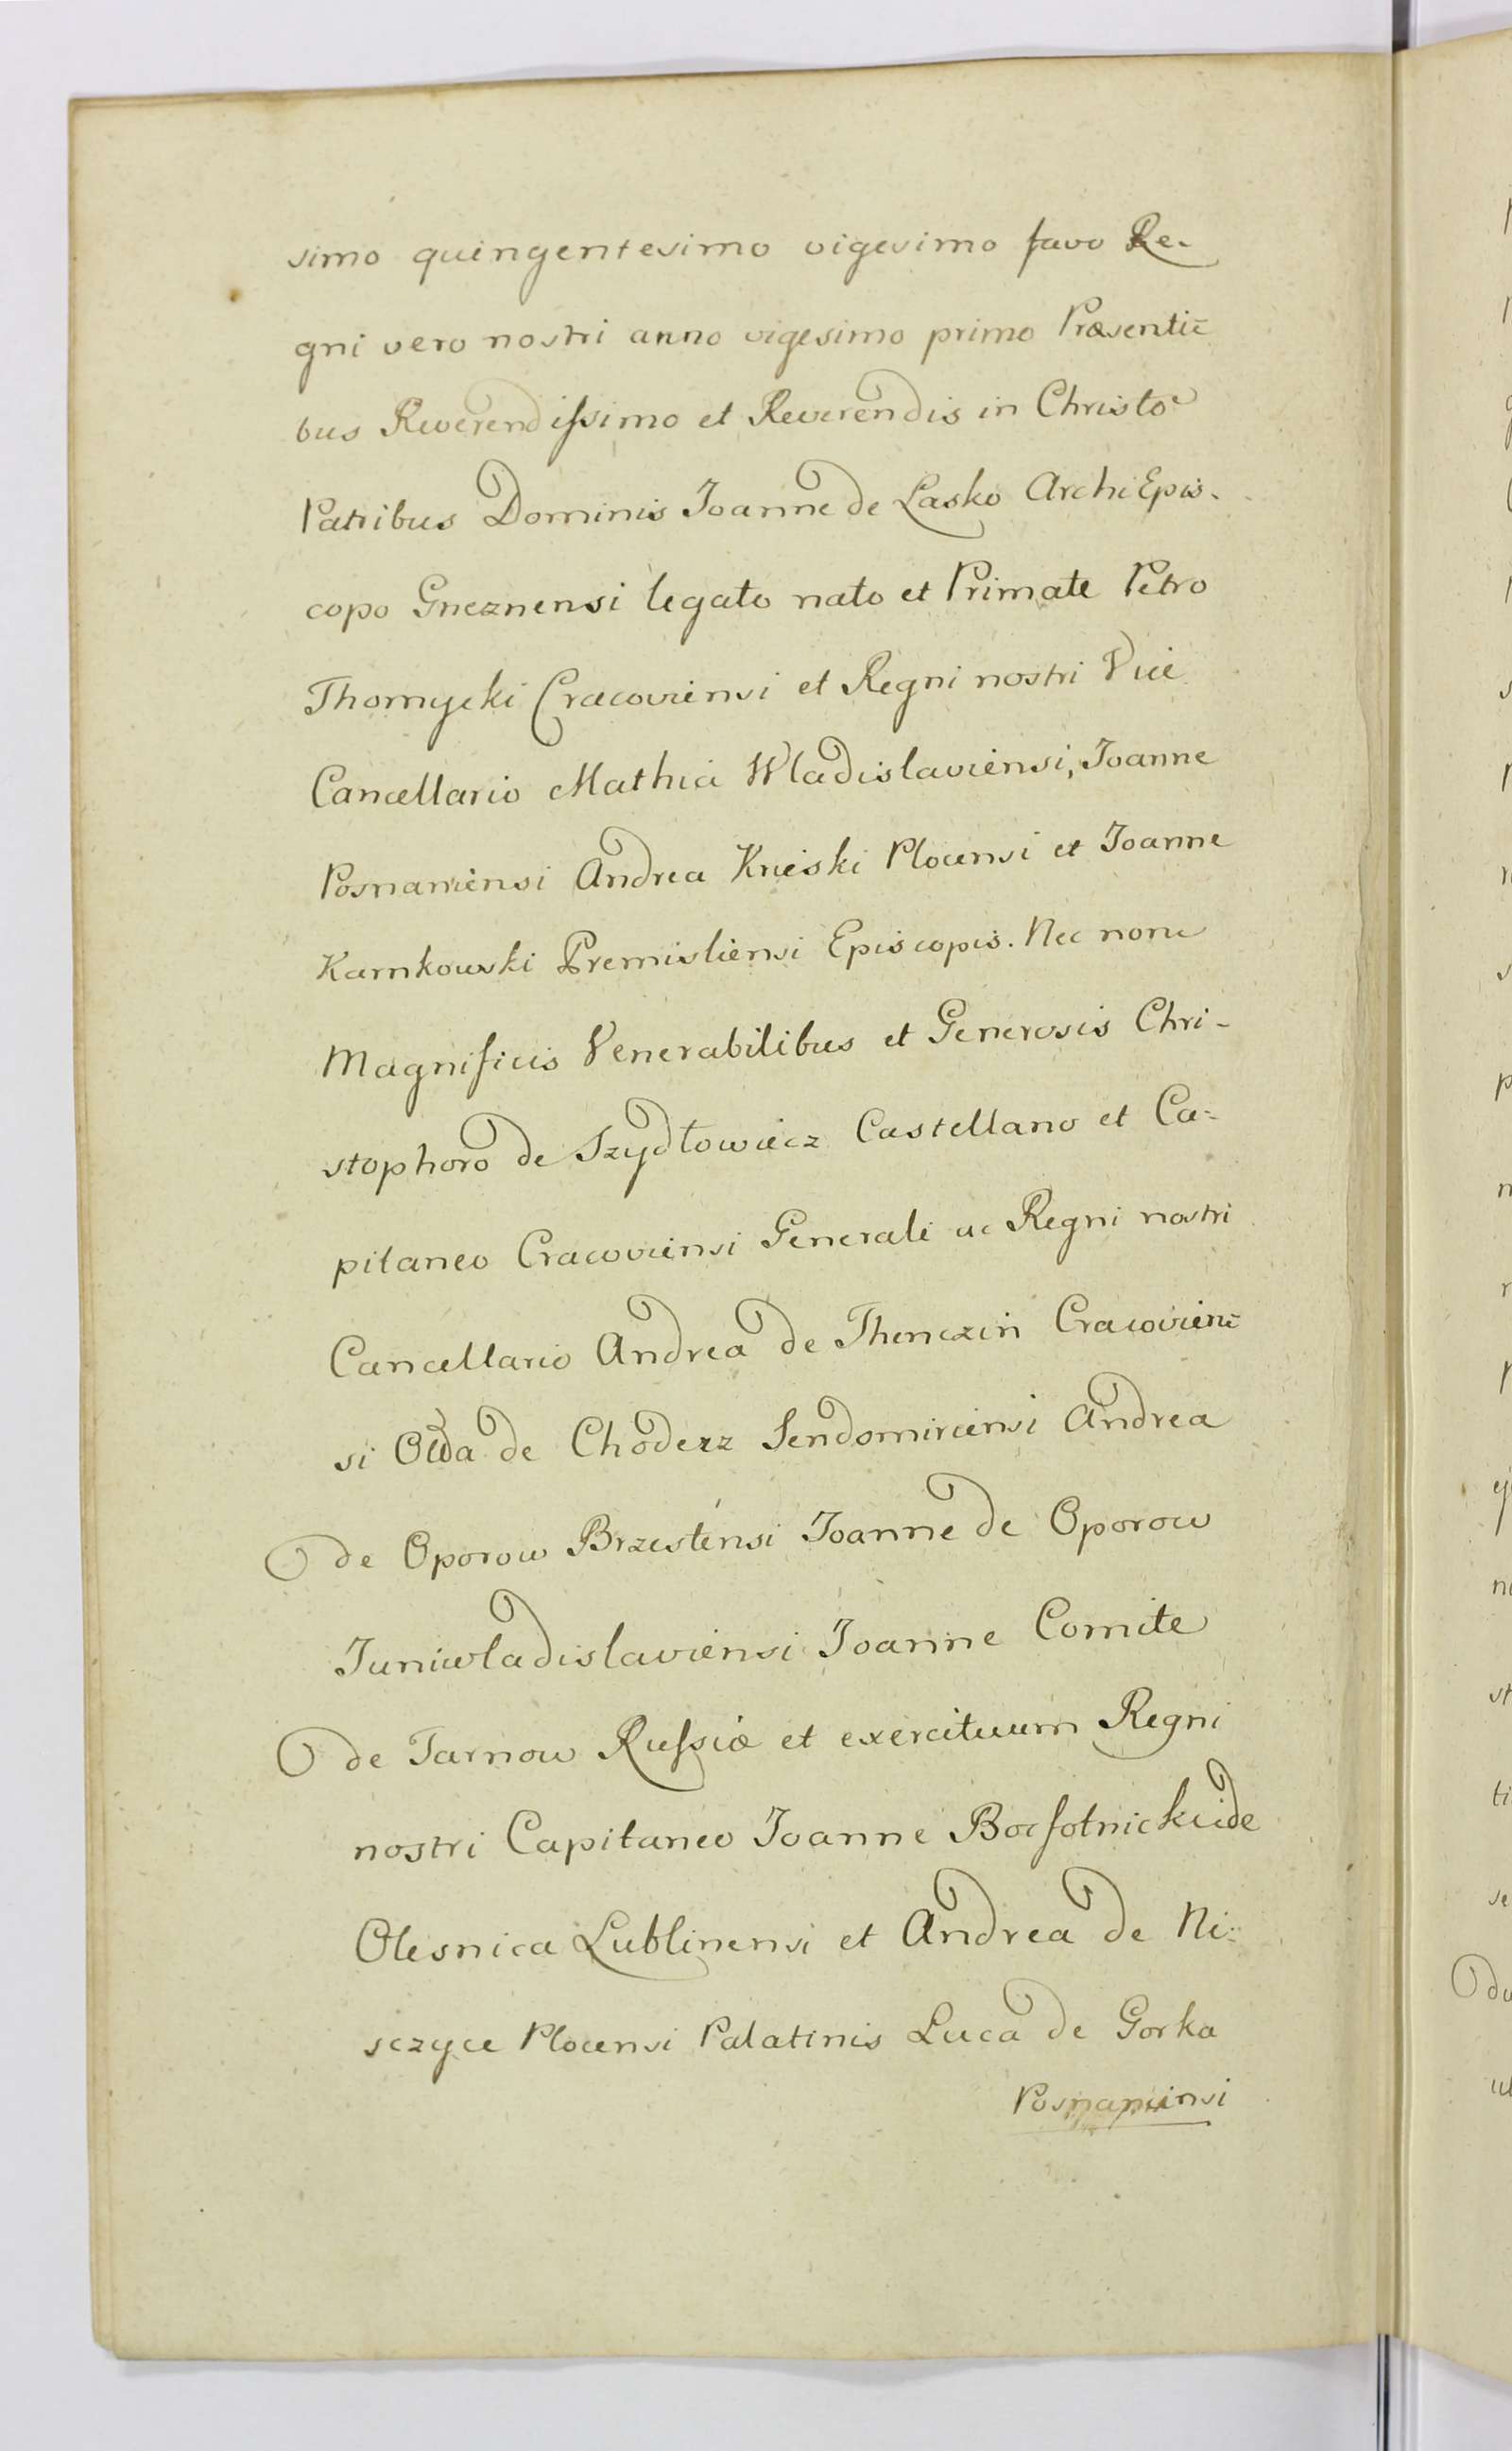 simo quingentesimo vigesimo favo Re-
gni vero nostri anno vigesimo primo Præsenti=
bus Reverendissimo et Reverendis in Christo
Patribus Dominis Joanne de Lasko ArchiEpis-
copo Gneznensi legato nato et Primate Petro
Thomycki Cracoviensi et Regni nostri Vice
Cancellario Mathia Wladislaviensi, Joanne
Posnaniensi Andrea Krieski Plocensi et Joanne
Karnkowski Premisliensi Episcopis. Nec non
Magnificis Venerabilibus et Generosis Chri-
stophoro de Szydłowiecz Castellano et Ca=
pitaneo Cracoviensi Generali ac Regni nostri
Cancellario Andrea de Thenczin Cracovien=
si de Choderz Sendomiriensi Andrea
de Oporow Brzestensi Joanne de Oporow
Juniwladislaviensi Joanne Comite
de Tarnow Russiæ et exercituum Regni
nostri Capitaneo Joanne de
Olesnica Lublinensi et Andrea de Ni=
sczyce Plocensi Palatinis Luca de Gorka
Posnaniensi